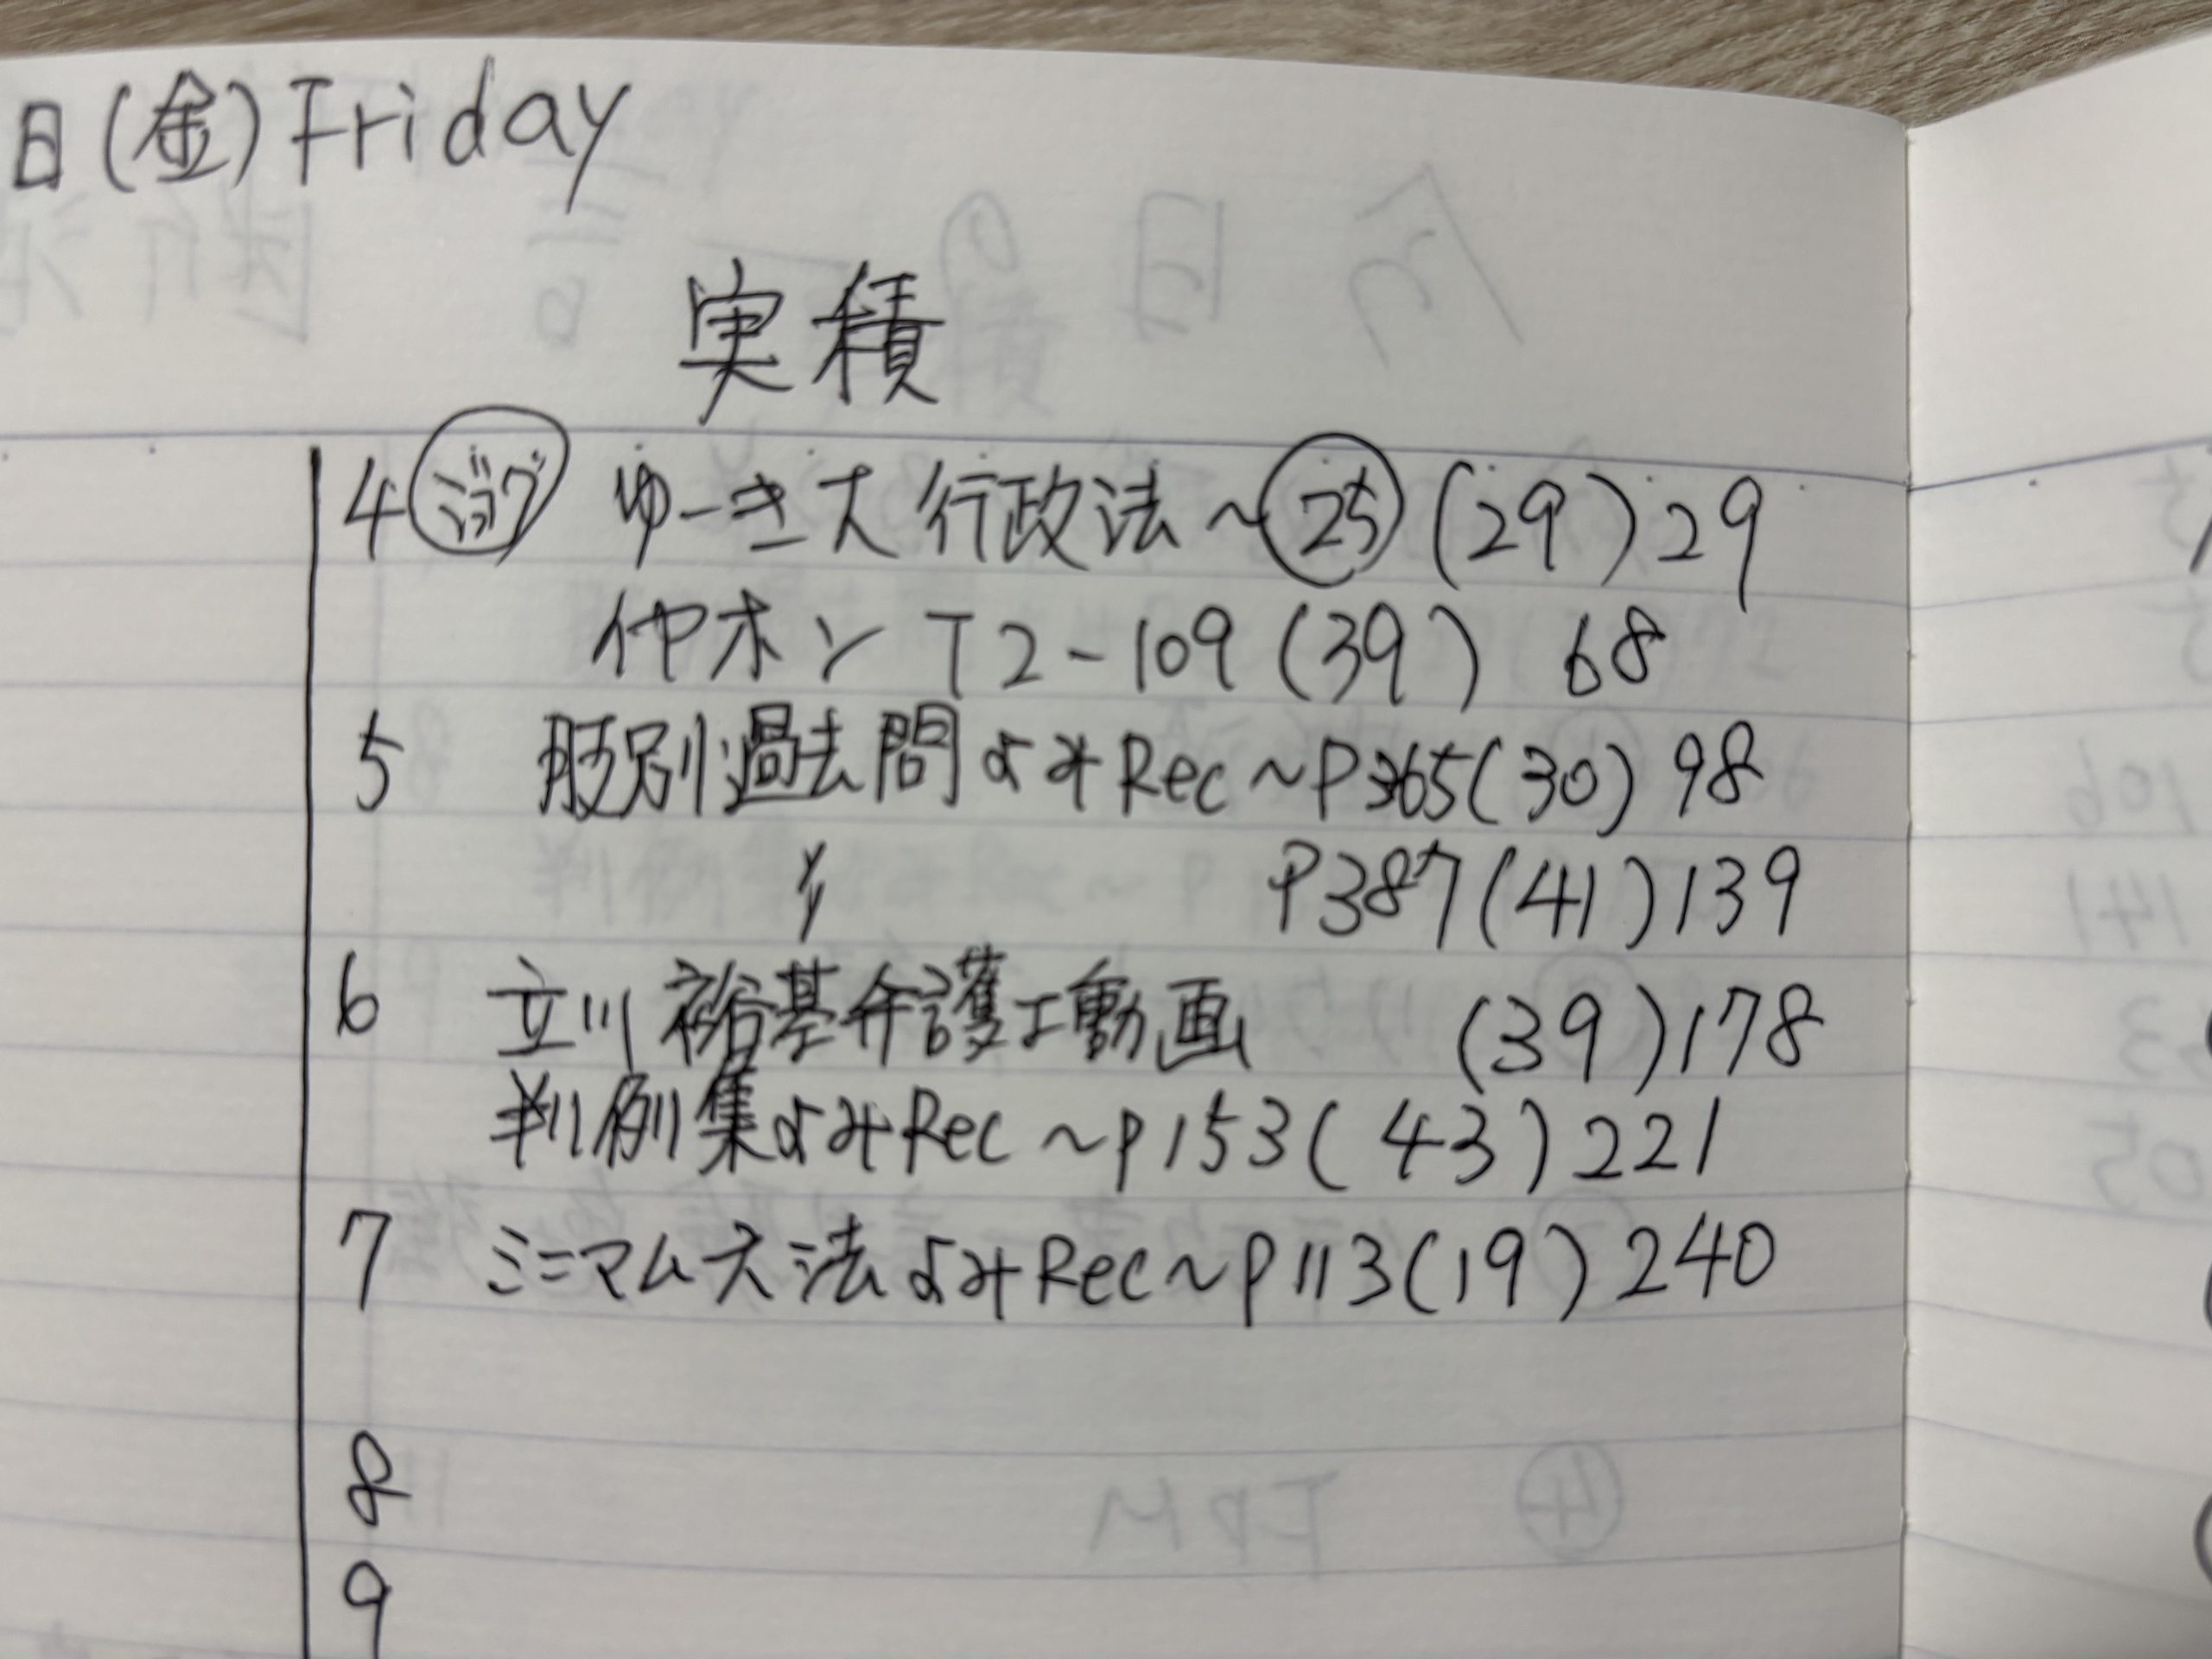 日(金)Friday
実積
4 ジョグ ゆーき大 行政法〜㉕(29)29
イヤホン T2-109(39) 68
5 肢別過去問よみRec〜P365(30)98
〃 P387(41)139
6 立川裕基弁護士動画 (39)178
判例集よみRec〜P153(43)221
7 ミニマム六法よみRec〜P113(19)240
8
9